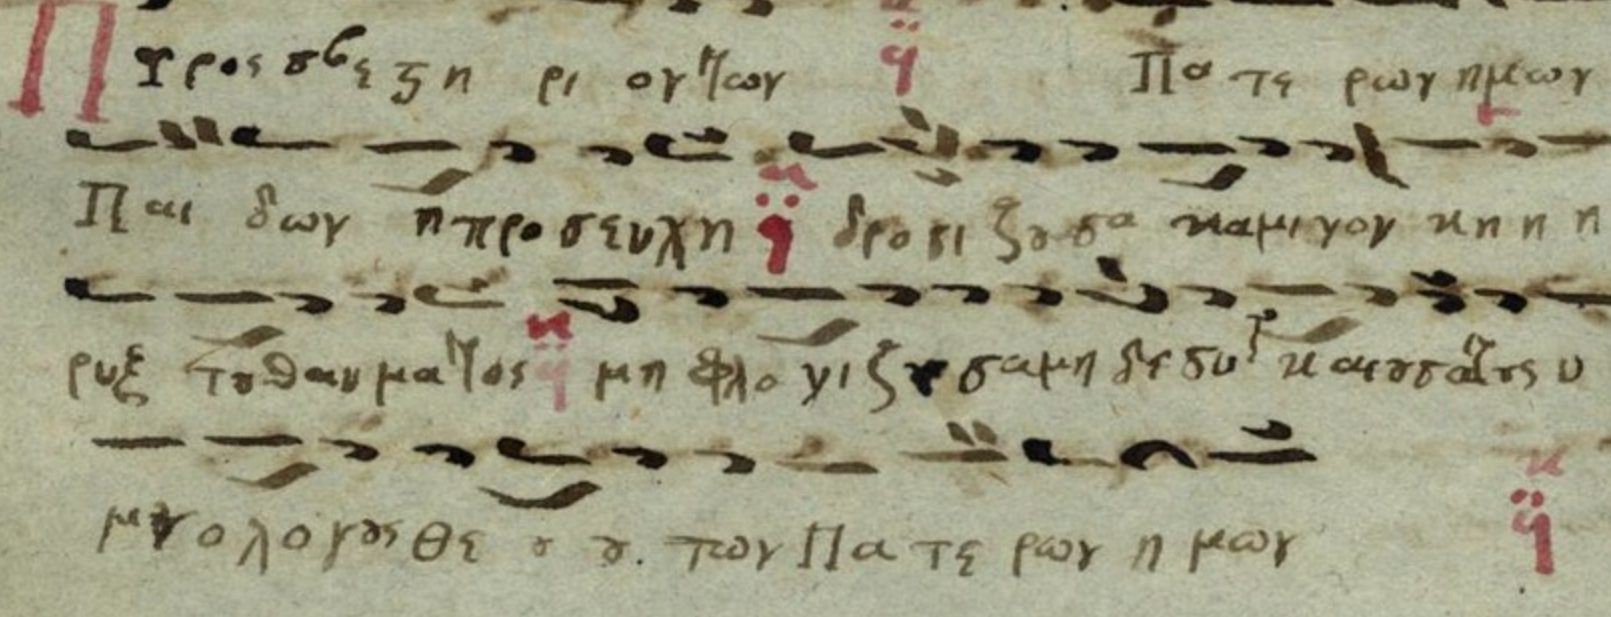 Προσβεστηριον των Πατερων ημων
Παι δων η προσευχη δροσιζουσα καμινον κη η η
ρυξ του θαυματος μη φλογιζουσα μη δε συγ και ουσα τους υ
μνολογους θε ου ου. των Πα τε ρων η μων